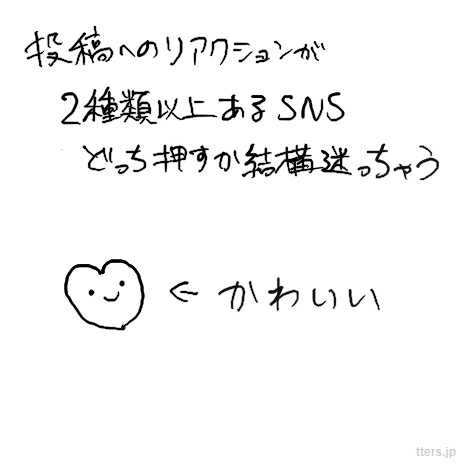 投稿へのリアクションが
2種類以上あるSNS
どっち押すか結構迷っちゃう
← かわいい
tters.jp